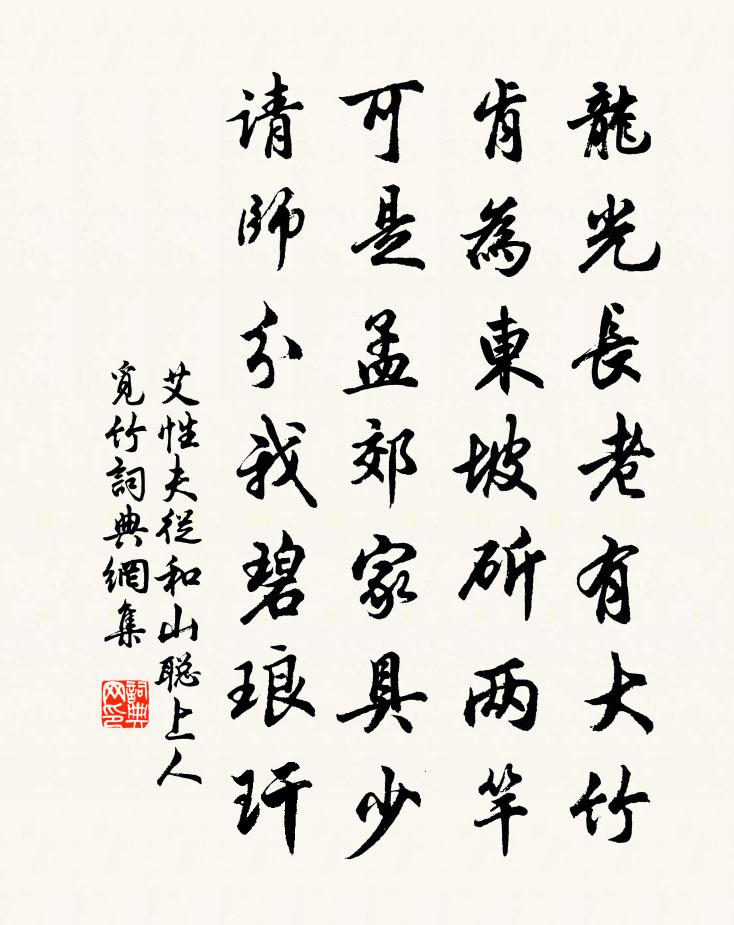 龍光長老有大竹
肯為東坡斫两竿
可是孟郊家具少
请師分我碧琅玕
艾性夫從和山聪上人
覓竹詞典網集
詞典网印